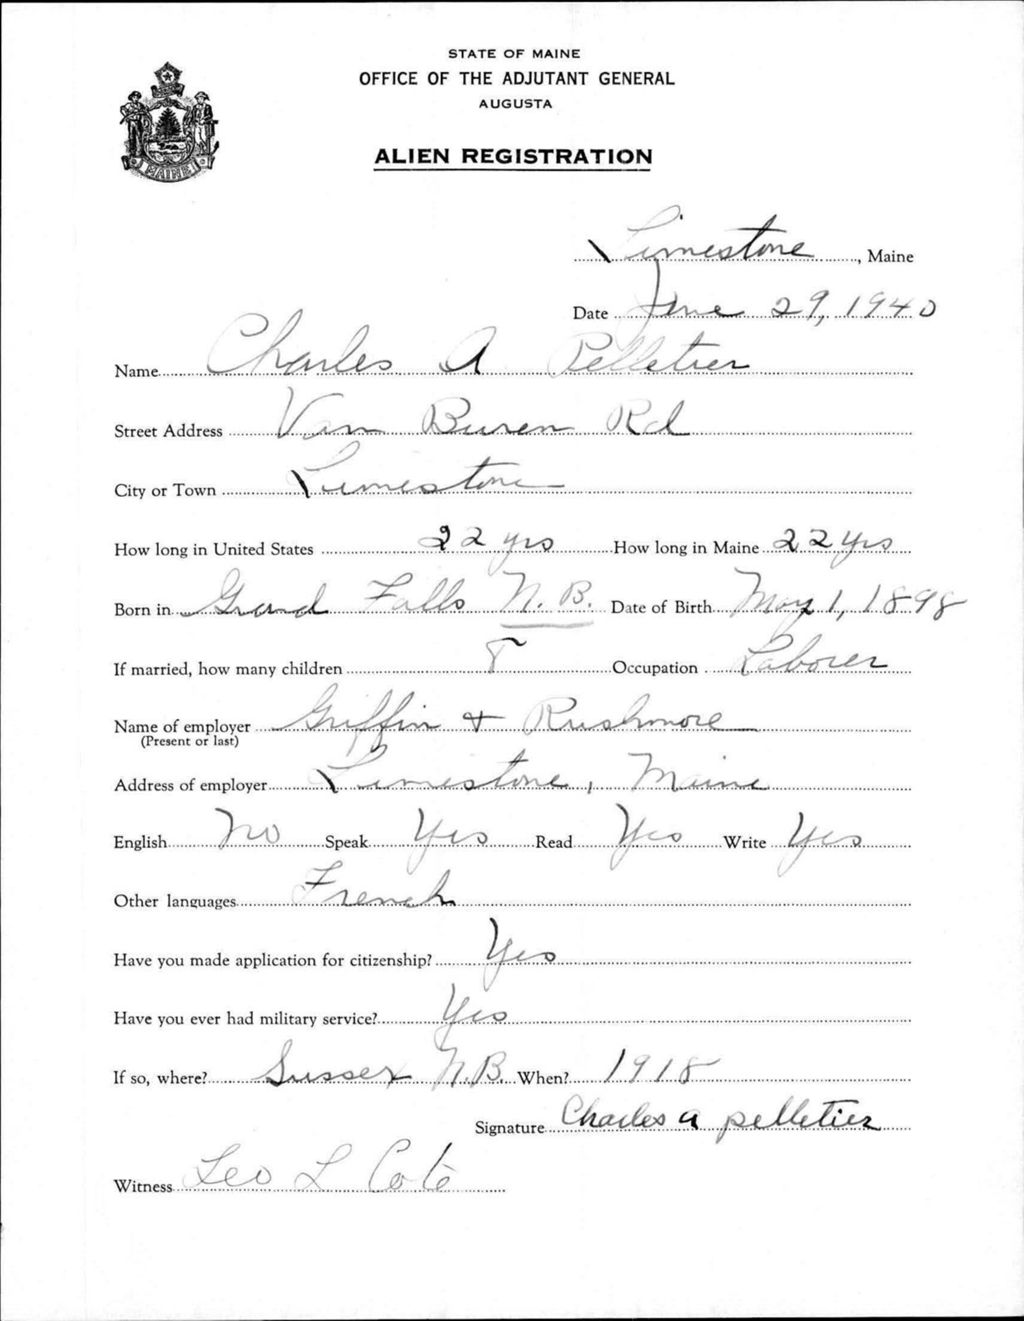 STATE OF MAINE
OFFICE OF THE ADJUTANT GENERAL
AUGUSTA
ALIEN REGISTRATION
MAINE
Limestone, Maine
Date June 29, 1940
Name Charles A Pelletier
Street Address Van Buren Rd
City or Town Limestone
How long in United States 22 yrs How long in Maine 22 yrs
Born in Grand Falls N.B. Date of Birth May 1, 1898
If married, how many children 8 Occupation Laborer
Name of employer Griffin + Rushmore
(Present or last)
Address of employer Limestone, Maine
English No Speak Yes Read Yes Write Yes
Other languages French
Have you made application for citizenship? Yes
Have you ever had military service? Yes
If so, where? Sussex N.B. When? 1918
Signature Charles a pelletier
Witness Leo L Coté